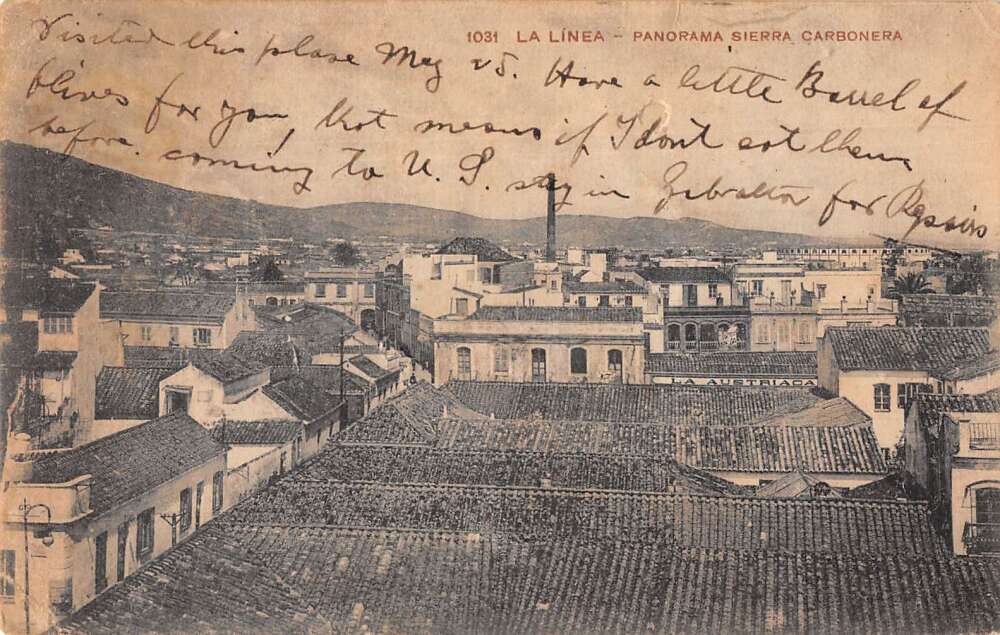 1031 LA LÍNEA - PANORAMA SIERRA CARBONERA
Visited this plase May 25. Have a little Barrel of
Olives for you, that means if I dont eat them
before coming to U. S. stay in Gibraltar for Repairs
LA AUSTRIACA